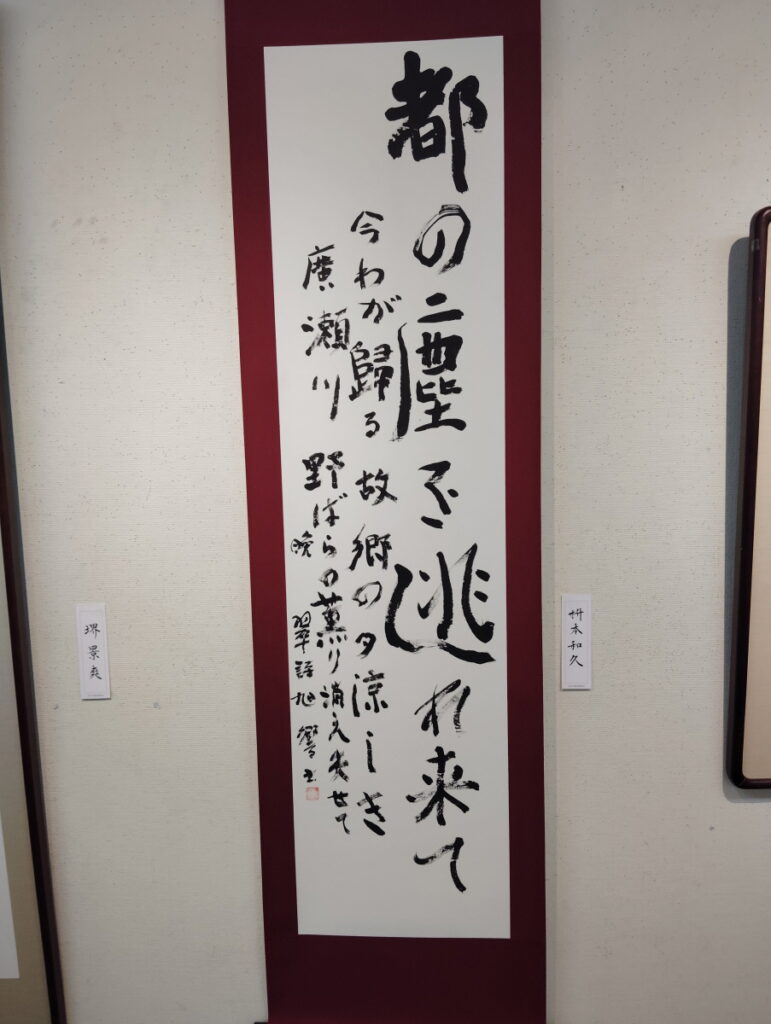 都の塵を逃れ来て
今わが歸る故郷の夕涼しき
廣瀬川 野ばらの薫り消え失せて
晩翠詩 旭響書
堺景爽